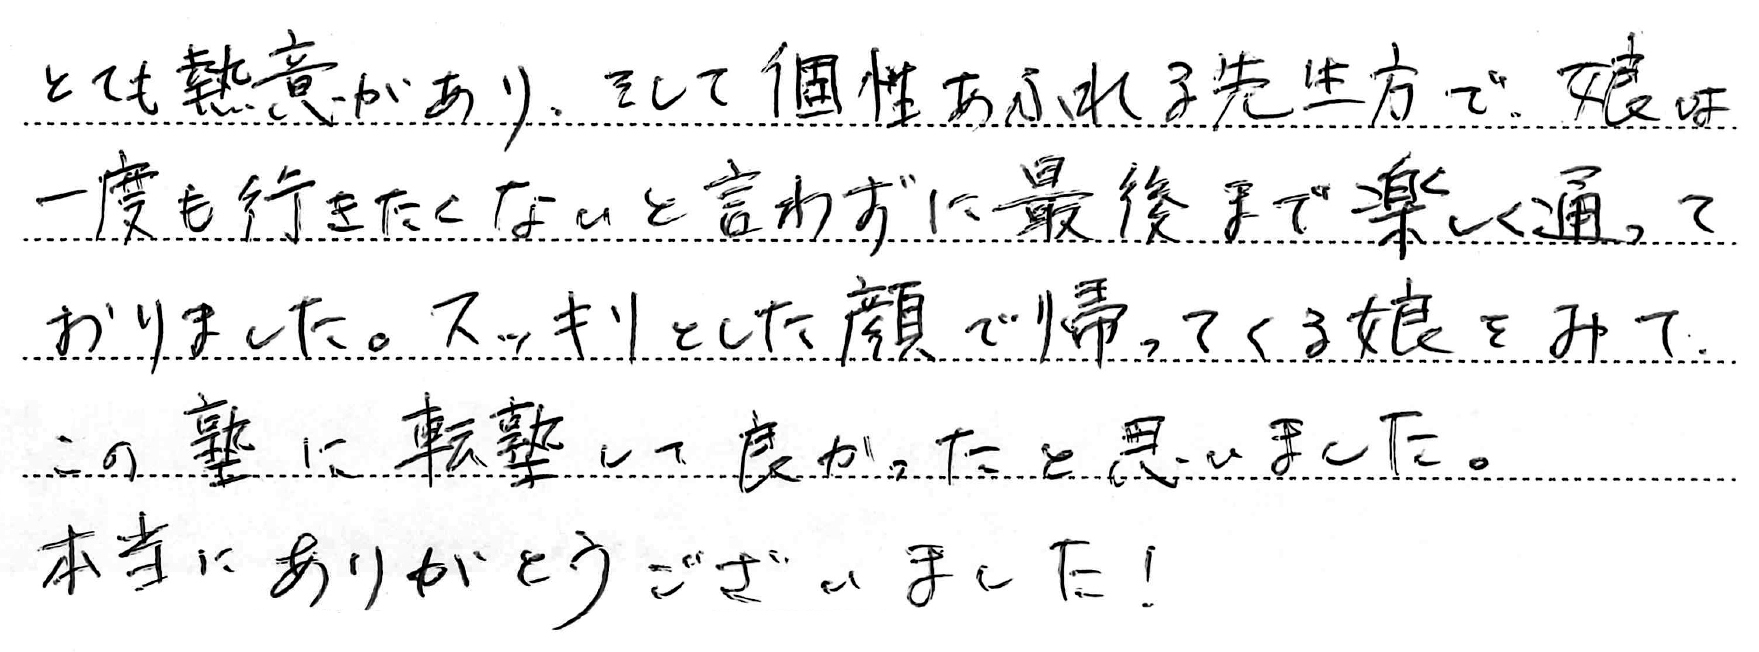 とても熱意があり、そして個性あふれる先生方で、娘は
一度も行きたくないと言わずに最後まで楽しく通って
おりました。スッキリとした顔で帰ってくる娘をみて、
この塾に転塾して良かったと思いました。
本当にありがとうございました!